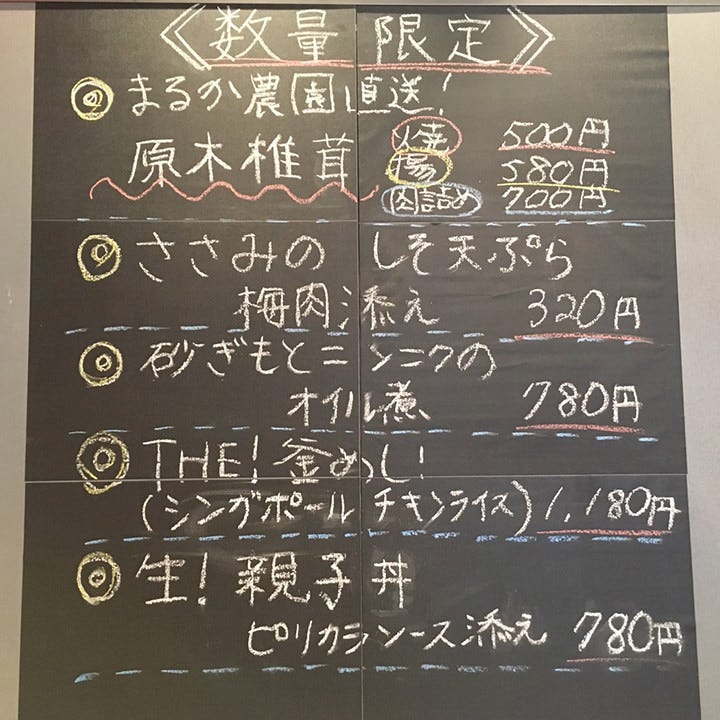 《数量限定》
◎まるか農園直送!
原木椎茸
焼 500円
場 580円
肉詰め 700円
◎ささみの しそ天ぷら
梅肉添え 320円
◎砂ぎもとニンニクの
オイル煮 780円
◎THE!釜めし!
(シンガポールチキンライス) 1,180円
◎生!親子丼
ピリカラソース添え 780円